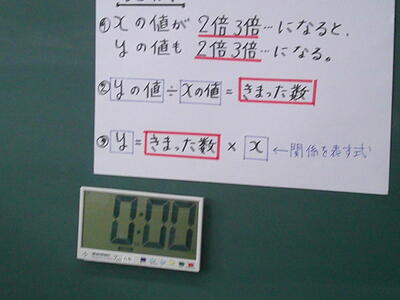 ① xの値が 2倍 3倍…になると、
yの値も 2倍 3倍…になる。
② yの値 ÷ xの値 = きまった数
③ y = きまった数 × x ←関係を表す式
0:00